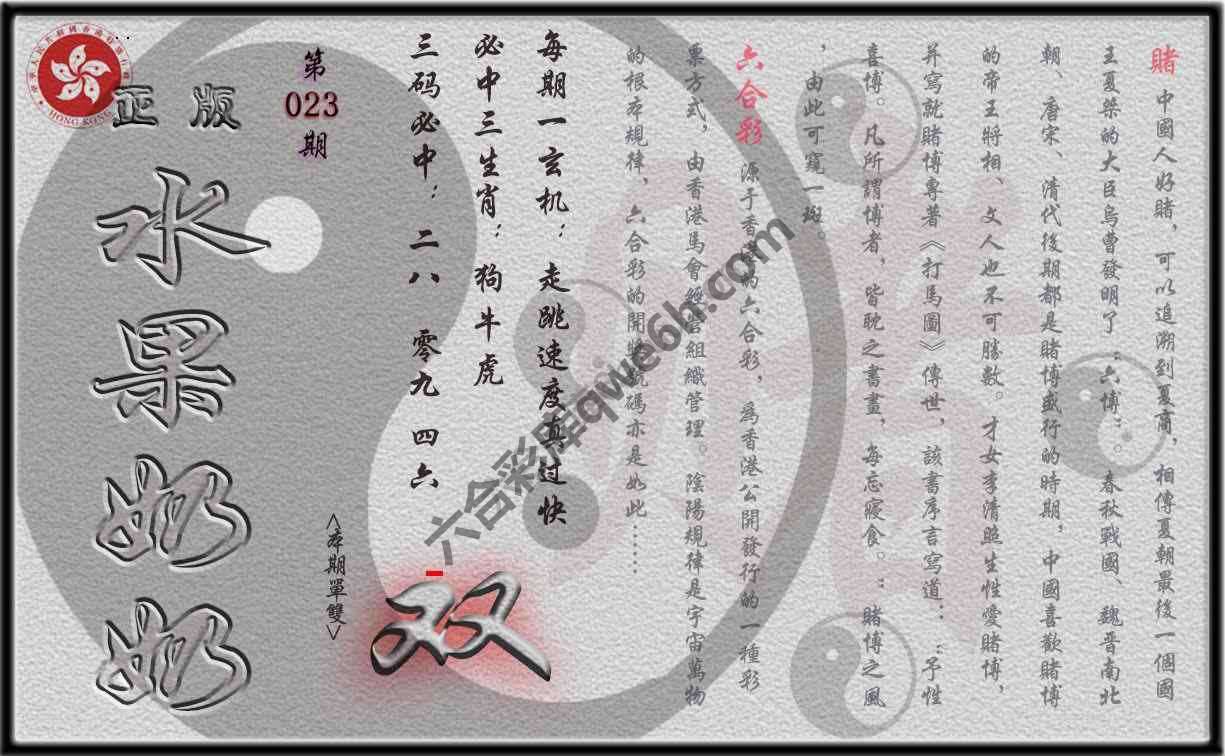 賭 中國人好賭，可以追溯到夏商，相傳夏朝最後一個國
王夏桀的大臣烏曹發明了：六博：。春秋戰國、魏晋南北
朝、唐宋、清代後期都是賭博盛行的時期，中國喜歡賭博
的帝王將相、文人也不可勝數。才女李清照生性愛賭博，
并寫就賭博專著《打馬圖》傳世，該書序言寫道：：予性
喜博。凡所謂博者，皆耽之書晝，每忘寢食。：賭博之風
，由此可窺一斑。
六合彩 源于香港的六合彩，爲香港公開發行的一種彩
票方式，由香港馬會經營組織管理。陰陽規律是宇宙萬物
的根本規律、六合彩的開獎號碼亦是如此……
每期一玄机：走跳速度真过快
必中三生肖：狗牛虎
三码必中：二八 零九 四六
<本期單雙>
双
第
023
期
正版
水果奶奶
HONG KONG
六合彩库qwe6h.com